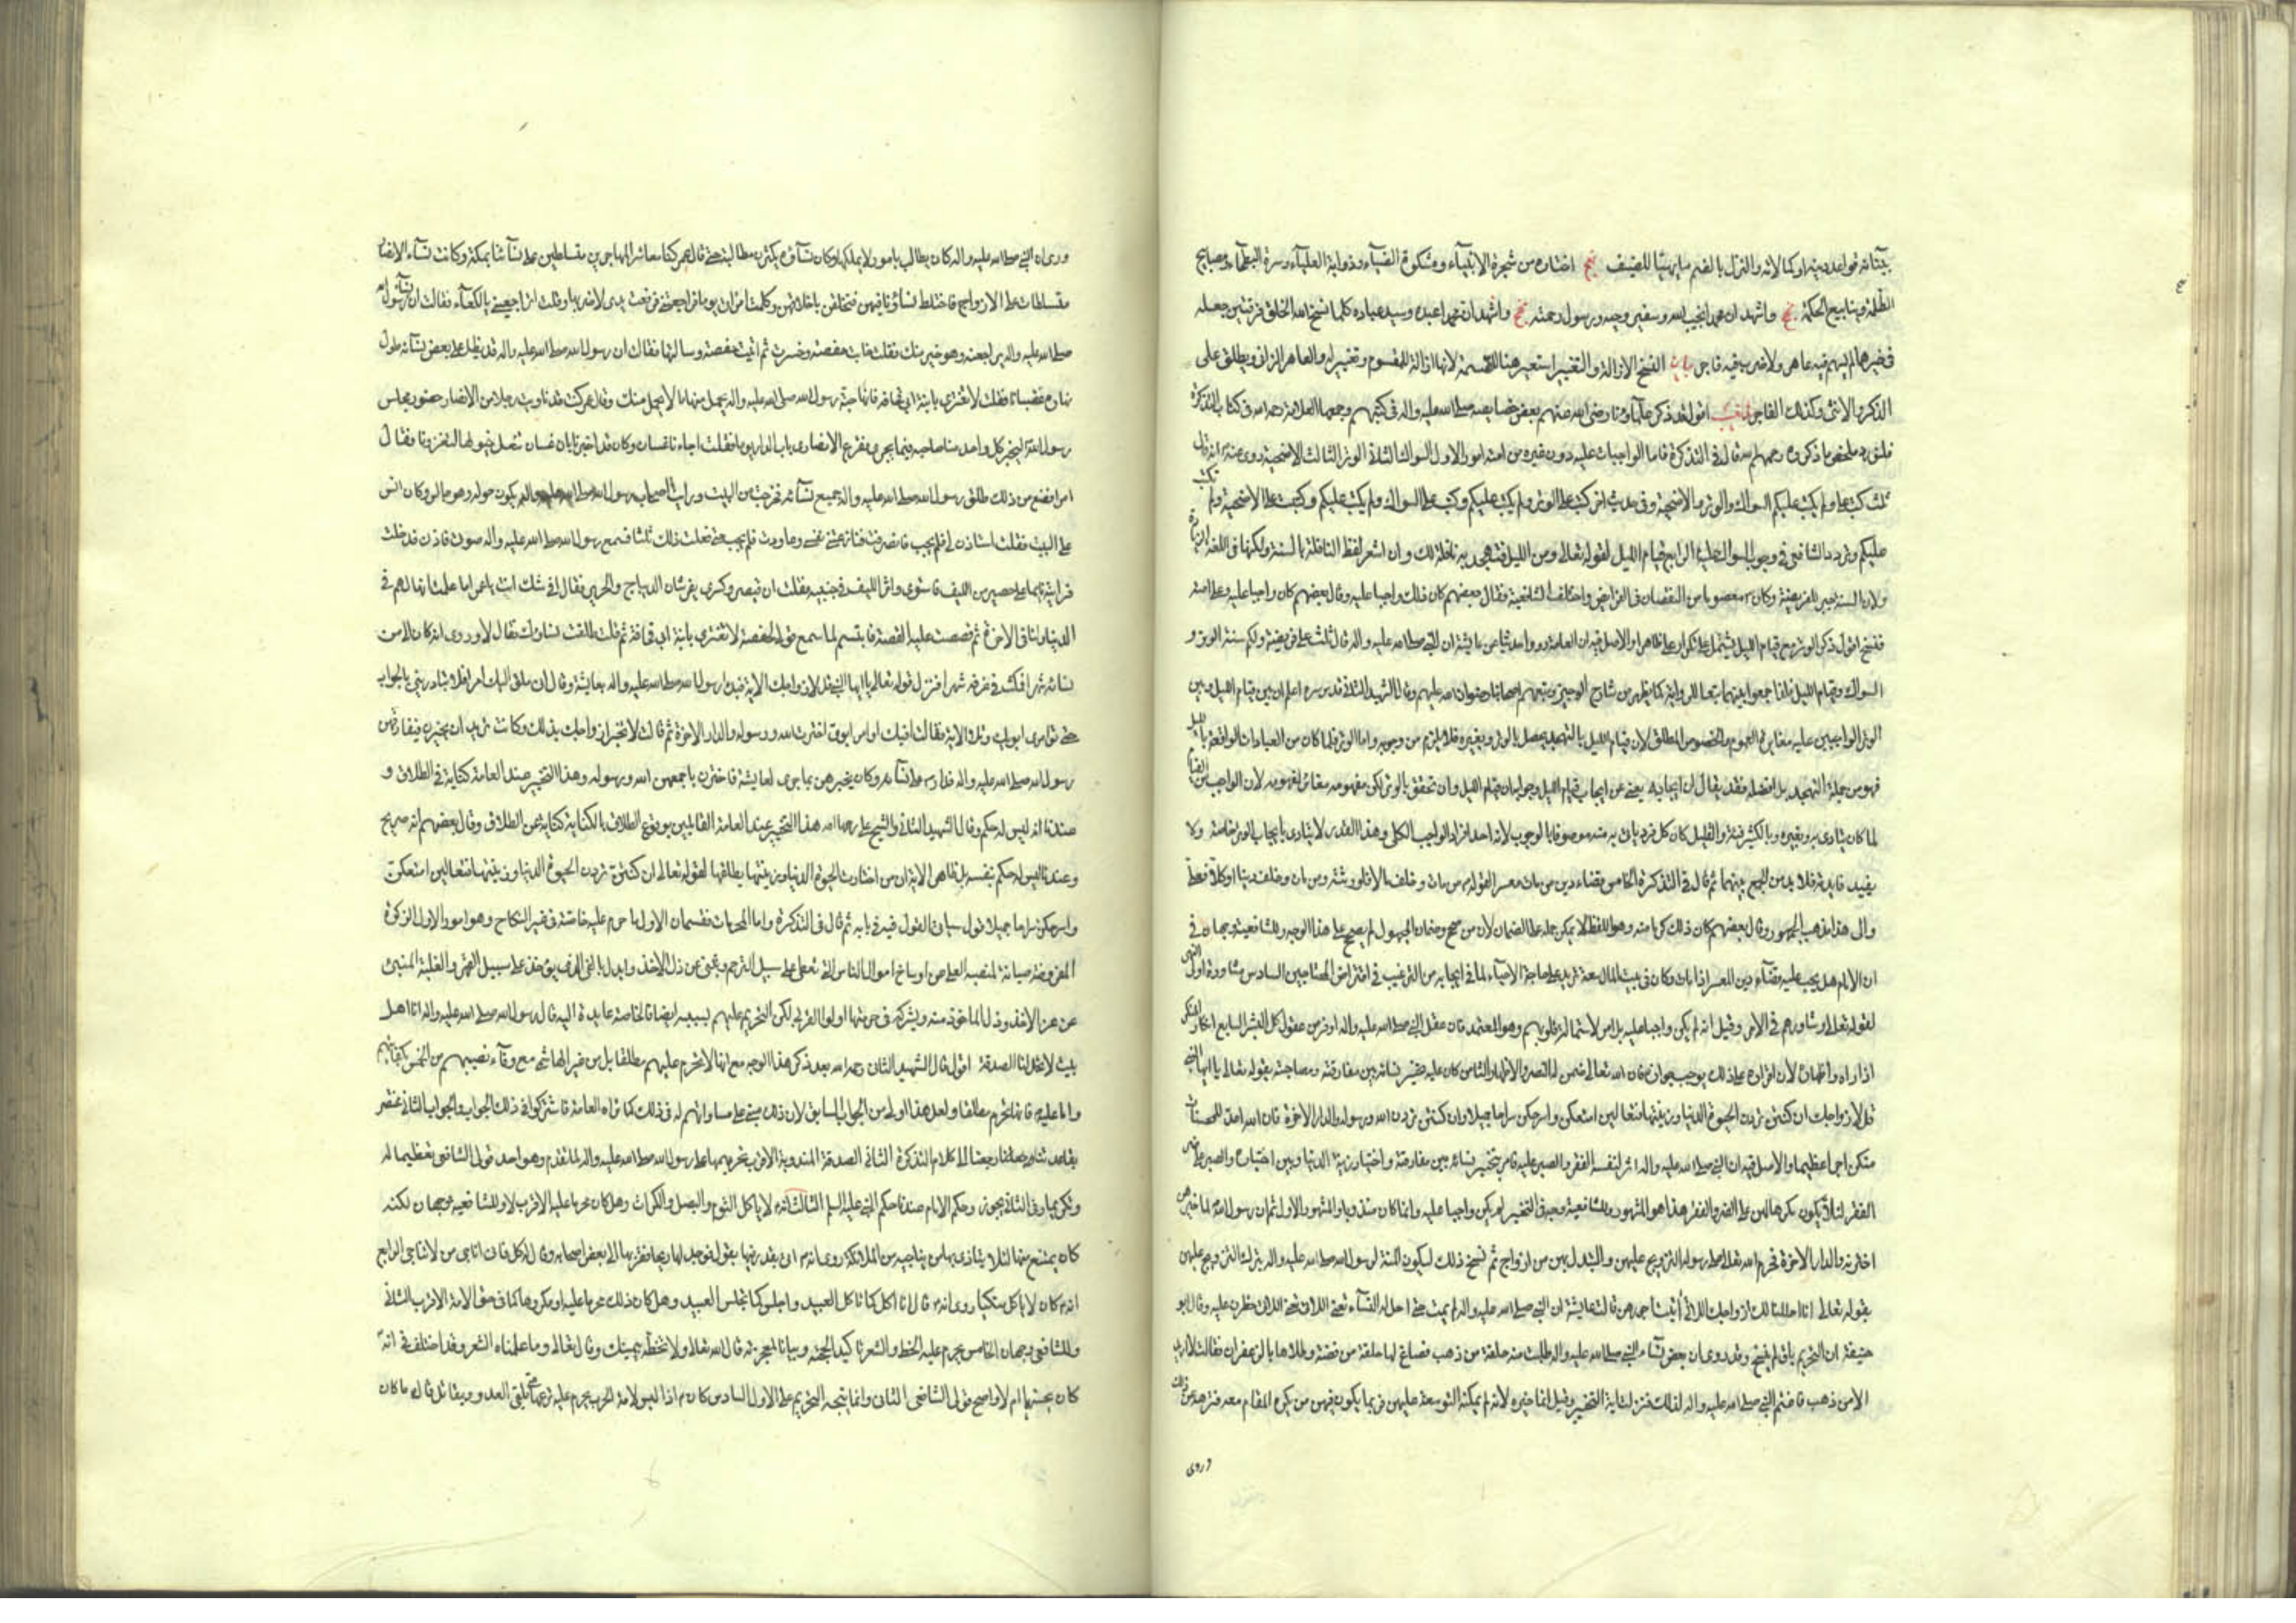 جنات فواعد دينه او كما لاته والنزل بالضم ما يهيئا للضيف نهج اختاره من شجرة الانبياء ومشكوة الضياء وذوابة العلياء وسرة البطحاء ومصابيح
الظلمة وينابيع الحكمة نهج واشهد ان محمدا نجيب الله وسفير وحيه ورسول رحمته نهج واشهد ان محمدا عبده وسيد عباده كلما نسخ الله الخلق فرقتين جعله
في خيرهما لم يسهم فيه عاهر ولا ضرب فيه فاجر بيان النسخ الازالة والتغيير استعير هنا للقسمة لانها ازالة للمقسوم وتغيير له والعاهر الزاني ويطلق على
الذكر والانثى وكذلك الفاجر اقول قد ذكر علماؤنا رضي الله عنهم بعض خصايصه صلى الله عليه واله في كتبهم وجمعها العلامة رحمه الله في كتاب التذكرة
فلنورد ملخص ما ذكروه رحمهم الله قال في التذكرة فاما الواجبات عليه دون غيره من امته امور الاول السواك الثاني الوتر الثالث الاضحية روى عنه انه قال
ثلث كتب علي ولم يكتب عليكم السواك والوتر والاضحية وفي حديث اخر كتب علي الوتر ولم يكتب عليكم وكتب علي السواك ولم يكتب عليكم وكتبت علي الاضحية ولم تكتب
عليكم وتردد الشافعي في وجوب السواك عليه الرابع قيام الليل لقوله تعالى ومن الليل فتهجد به نافلة لك وان اشعر لفظ النافلة بالسنة ولكنها في اللغة الزيادة
ولان السنة جبر للفريضة وكان معصوما من النقصان في الفرايض واختلفت الشافعية فقال بعضهم كان ذلك واجبا عليه وقال بعضهم كان واجبا عليه وعلى امته
فنسخ اقول ذكر الوتر مع قيام الليل يشتمل على تكرار على ظاهرا والاصل فيه ان العامة رووا حديثا عن عايشة ان النبي صلى الله عليه واله قال ثلث علي فريضة ولكم سنة الوتر و
السواك وقيام الليل
الوتر الواجبين عليه مغايرة العموم والخصوص المطلق لان قيام الليل بالتهجد يحصل بالوتر وبغيره فلا يلزم من وجوبه واما الوتر فلما كان من العبادات الواقعة بالليل
فهو من جملة التهجد بل افضله فقد يقال ان ايجابه يغني عن ايجاب قيام الليل وجوابه ان قيام الليل وان تحقق بالوتر لكن مفهومه مغاير لمفهومه لان الواجب من القيام
لما كان يتادى به وبغيره وبالكثير منه والقليل كان كل فرد ياتي به منه موصوفا بالوجوب لانه احد افراد الواجب الكلي وهذا القدر لا يتادى بايجاب الوتر خاصة ولا
يفيد فايدته فلا بد من الجمع بينهما ثم قال في التذكرة الخامس قضاء دين من مات معسرا لقوله من مات وخلف مالا فلورثته ومن مات وخلف دينا او كلا فعلي
والى هذا مذهب الجمهور وقال بعضهم كان ذلك كرما منه وهو اللفظ لا يمكن حمله على الضمان لان من صحح ضمان المجهول لم يصحح على هذا الوجه وللشافعية وجهان في
ان الامام هل يجب عليه قضاء دين المعسر اذا مات وكان في بيت المال سعة تزيد على حاجة الاحياء لما في ايجابه من الترغيب في اقتراض المحتاجين السادس مشاورة اولي النهى
لقوله تعالى وشاورهم في الامر وقيل انه لم يكن واجبا عليه بل امر لاستمالة قلوبهم وهو المعتمد فان عقل النبي صلى الله عليه واله اوفر من عقول كل البشر السابع انكار المنكر
اذا راه واظهاره لان اقراره على ذلك يوجب جوازه فان الله تعالى ضمن له النصر والاظهار الثامن كان عليه تخيير نسائه بين مفارقته ومصاحبته بقوله تعالى يا ايها النبي
قل لازواجك ان كنتن تردن الحيوة الدنيا وزينتها فتعالين امتعكن واسرحكن سراحا جميلا وان كنتن تردن الله ورسوله والدار الاخرة فان الله اعد للمحسنات
منكن اجرا عظيما والاصل فيه ان النبي صلى الله عليه واله اثر لنفسه الفقر والصبر عليه فامر بتخيير نسائه بين مفارقته واختيار زينة الدنيا وبين اختياره والصبر على
الفقر لئلا يكون مكرها لهن على الضر والفقر هذا هو المشهور وللشافعية وجه في التخيير لم يكن واجبا عليه وانما كان مندوبا والمشهور الاول ثم ان رسول الله لما خيرهن
اخترنه والدار الاخرة فحرم الله تعالى على رسوله التزويج عليهن والتبدل بهن من ازواج ثم نسخ ذلك ليكون المنة لرسول الله صلى الله عليه واله بترك التزويج عليهن
بقوله تعالى انا احللنا لك ازواجك اللاتي اتيت اجورهن قالت عايشة ان النبي صلى الله عليه واله لم يمت حتى احل له النساء تعني اللاتي حظرن عليه وقال ابو
حنيفة ان التحريم باق لم ينسخ وقد روى ان بعض نساء النبي صلى الله عليه واله طلبت منه حلقة من ذهب فصاغ لها حلقة من فضة وطلاها بالزعفران فقالت لا اريد
الا من ذهب فاغتم النبي صلى الله عليه واله لذلك فنزلت اية التخيير وقيل انما خيره لانه لم يمكنه التوسعة عليهن فربما يكون فيهن من يكره المقام معه فنزهه عن ذلك
وروى
وروى ان النبي صلى الله عليه واله كان يطالب بامور لا يملكها وكان نساؤه يكثرن مطالبته حتى قال عمر كنا معاشر المهاجرين متسلطين على نسائنا بمكة وكانت نساء الانصار
متسلطات على الازواج فاختلط نساؤنا فيهن فتخلقن باخلاقهن وكلمت امراتي يوما فراجعتني فرفعت يدي لاضربها وقلت اتراجعيني يا لكعاء فقالت ان نساء رسول الله
صلى الله عليه واله يراجعنه وهو خير منك فقلت خابت حفصة وخسرت ثم اتيت حفصة وسالتها فقالت ان رسول الله صلى الله عليه واله قد يظل على بعض نسائه طول
نهاره غضبانا فقلت لا تغتري بابنة ابي قحافة فانها حبة رسول الله صلى الله عليه واله يحمل منها ما لا يحمل منك وقال عمر كنت قد ناوبت رجلا من الانصار حضور مجلس
رسول الله ليخبر كل واحد منا صاحبه فيما يجري فقرع الانصاري باب الدار يوما فقلت اجاءتنا غسان وكان قد اخبرنا بان غسان تنعل خيولها لتغزونا فقال
امر افظع من ذلك طلق رسول الله صلى الله عليه واله جميع نسائه فخرجت من البيت ورايت اصحاب رسول الله صلى الله عليه واله يبكون حوله وهو جالس وكان انس
على البيت فقلت استاذن لي فلم يجب فانصرفت فنازعتني نفسي وعاودت فلم يجب حتى فعلت ذلك ثلثا فسمع رسول الله صلى الله عليه واله صوتي فاذن فدخلت
فرايته نائما على حصير من الليف فاستوى واثر الليف في جنبيه فقلت ان قيصر وكسرى يفرشان الديباج والحرير فقال افي شك انت يا عمر اما علمت انها لهم في
الدنيا ولنا في الاخرة ثم قصصت عليه القصة فابتسم لما سمع قولي لحفصة لا تغتري بابنة ابي قحافة ثم قلت طلقت نساءك فقال لا وروى انه كان الى من
نسائه شهرا فمكث في غرفة شهرا فنزل قوله تعالى يا ايها النبي قل لازواجك الاية فبدا رسول الله صلى الله عليه واله بعايشة وقال اني ملق اليك امرا فلا تبادريني بالجواب
حتى توامري ابويك وتلا الاية فقالت افيك اوامر ابوي اخترت الله ورسوله والدار الاخرة ثم قالت لا تخبر ازواجك بذلك وكانت تريد ان يخترن فيفارقهن
رسول الله صلى الله عليه واله فدار على نسائه وكان يخبرهن بما جرى لعايشة فاخترن باجمعهن الله ورسوله وهذا التخيير عند العامة كناية في الطلاق و
عندنا انه ليس له حكم وقال الشهيد الثاني والشيخ علي رحمهما الله هذا التخيير عند العامة القائلين بوقوع الطلاق بالكناية كناية عن الطلاق وقال بعضهم انه صريح
وعندنا ليس له حكم بنفسه بل ظاهر الاية ان من اختارت الحيوة الدنيا وزينتها يطلقها لقوله تعالى ان كنتن تردن الحيوة الدنيا وزينتها فتعالين امتعكن
واسرحكن سراحا جميلا اقول سياتي القول فيه في بابه ثم قال في التذكرة واما المحرمات فقسمان الاول ما حرم عليه خاصة في غير النكاح وهو امور الاول الزكوة
المفروضة صيانة لمنصبه العلي عن اوساخ اموال الناس التي تعطى على سبيل الترحم وتنبئ عن ذل الاخذ وابدل بالفيء الذي يؤخذ على سبيل القهر والغلبة المنبئ
عن عز الاخذ وذل الماخوذ منه ويشركه في حرمتها اولوا القربى لكن التحريم عليهم بسببه ايضا فالخاصة عايدة اليه قال رسول الله صلى الله عليه واله انا اهل
بيت لا تحل لنا الصدقة اقول قال الشهيد الثاني رحمه الله بعد ذكر هذا الوجه مع انها لا تحرم عليهم مطلقا بل من غير الهاشمي مع وفاء نصيبهم من الخمس بكفايتهم
واما عليه فانها تحرم مطلقا ولعل هذا اولى من الجواب السابق لان ذلك مبني على مساواتهم له في ذلك كما تراه العامة فاشتركوا في ذلك الجواب والجواب الثاني مختص
بقاعدتنا رجعنا الى كلام التذكرة الثاني الصدقة المندوبة الاقرب تحريمها على رسول الله صلى الله عليه واله لما تقدم وهو احد قولي الشافعي تعظيما له
وتكريما وفي الثاني يجوز وحكم الامام عندنا حكم النبي عليه السلام الثالث انه لا ياكل الثوم والبصل والكراث وهل كان محرما عليه الاقرب لا وللشافعية وجهان لكنه
كان يمتنع منها لئلا يتاذى بها من يناجيه من الملائكة روى انه اتي بقدر فيها بقول فوجد لها ريحا فقربها الى بعض اصحابه وقال له كل فاني اناجي من لا تناجي الرابع
انه كان لا ياكل متكيا روى انه قال انا اكل كما تاكل العبيد واجلس كما تجلس العبيد وهل كان ذلك محرما عليه او مكروها كما في حق الامة الاقرب الثاني
وللشافعي وجهان الخامس يحرم عليه الخط والشعر تاكيدا لحجته وبيانا لمعجزته قال الله تعالى ولا تخطه بيمينك وقال تعالى وما علمناه الشعر وقد اختلف في انه
كان يحسنها ام لا واصح قولي الشافعي الثاني وانما يتجه التحريم على الاول السادس كان اذا لبس لامة الحرب يحرم عليه نزعها حتى يلقى العدو ويقاتل قال ما كان